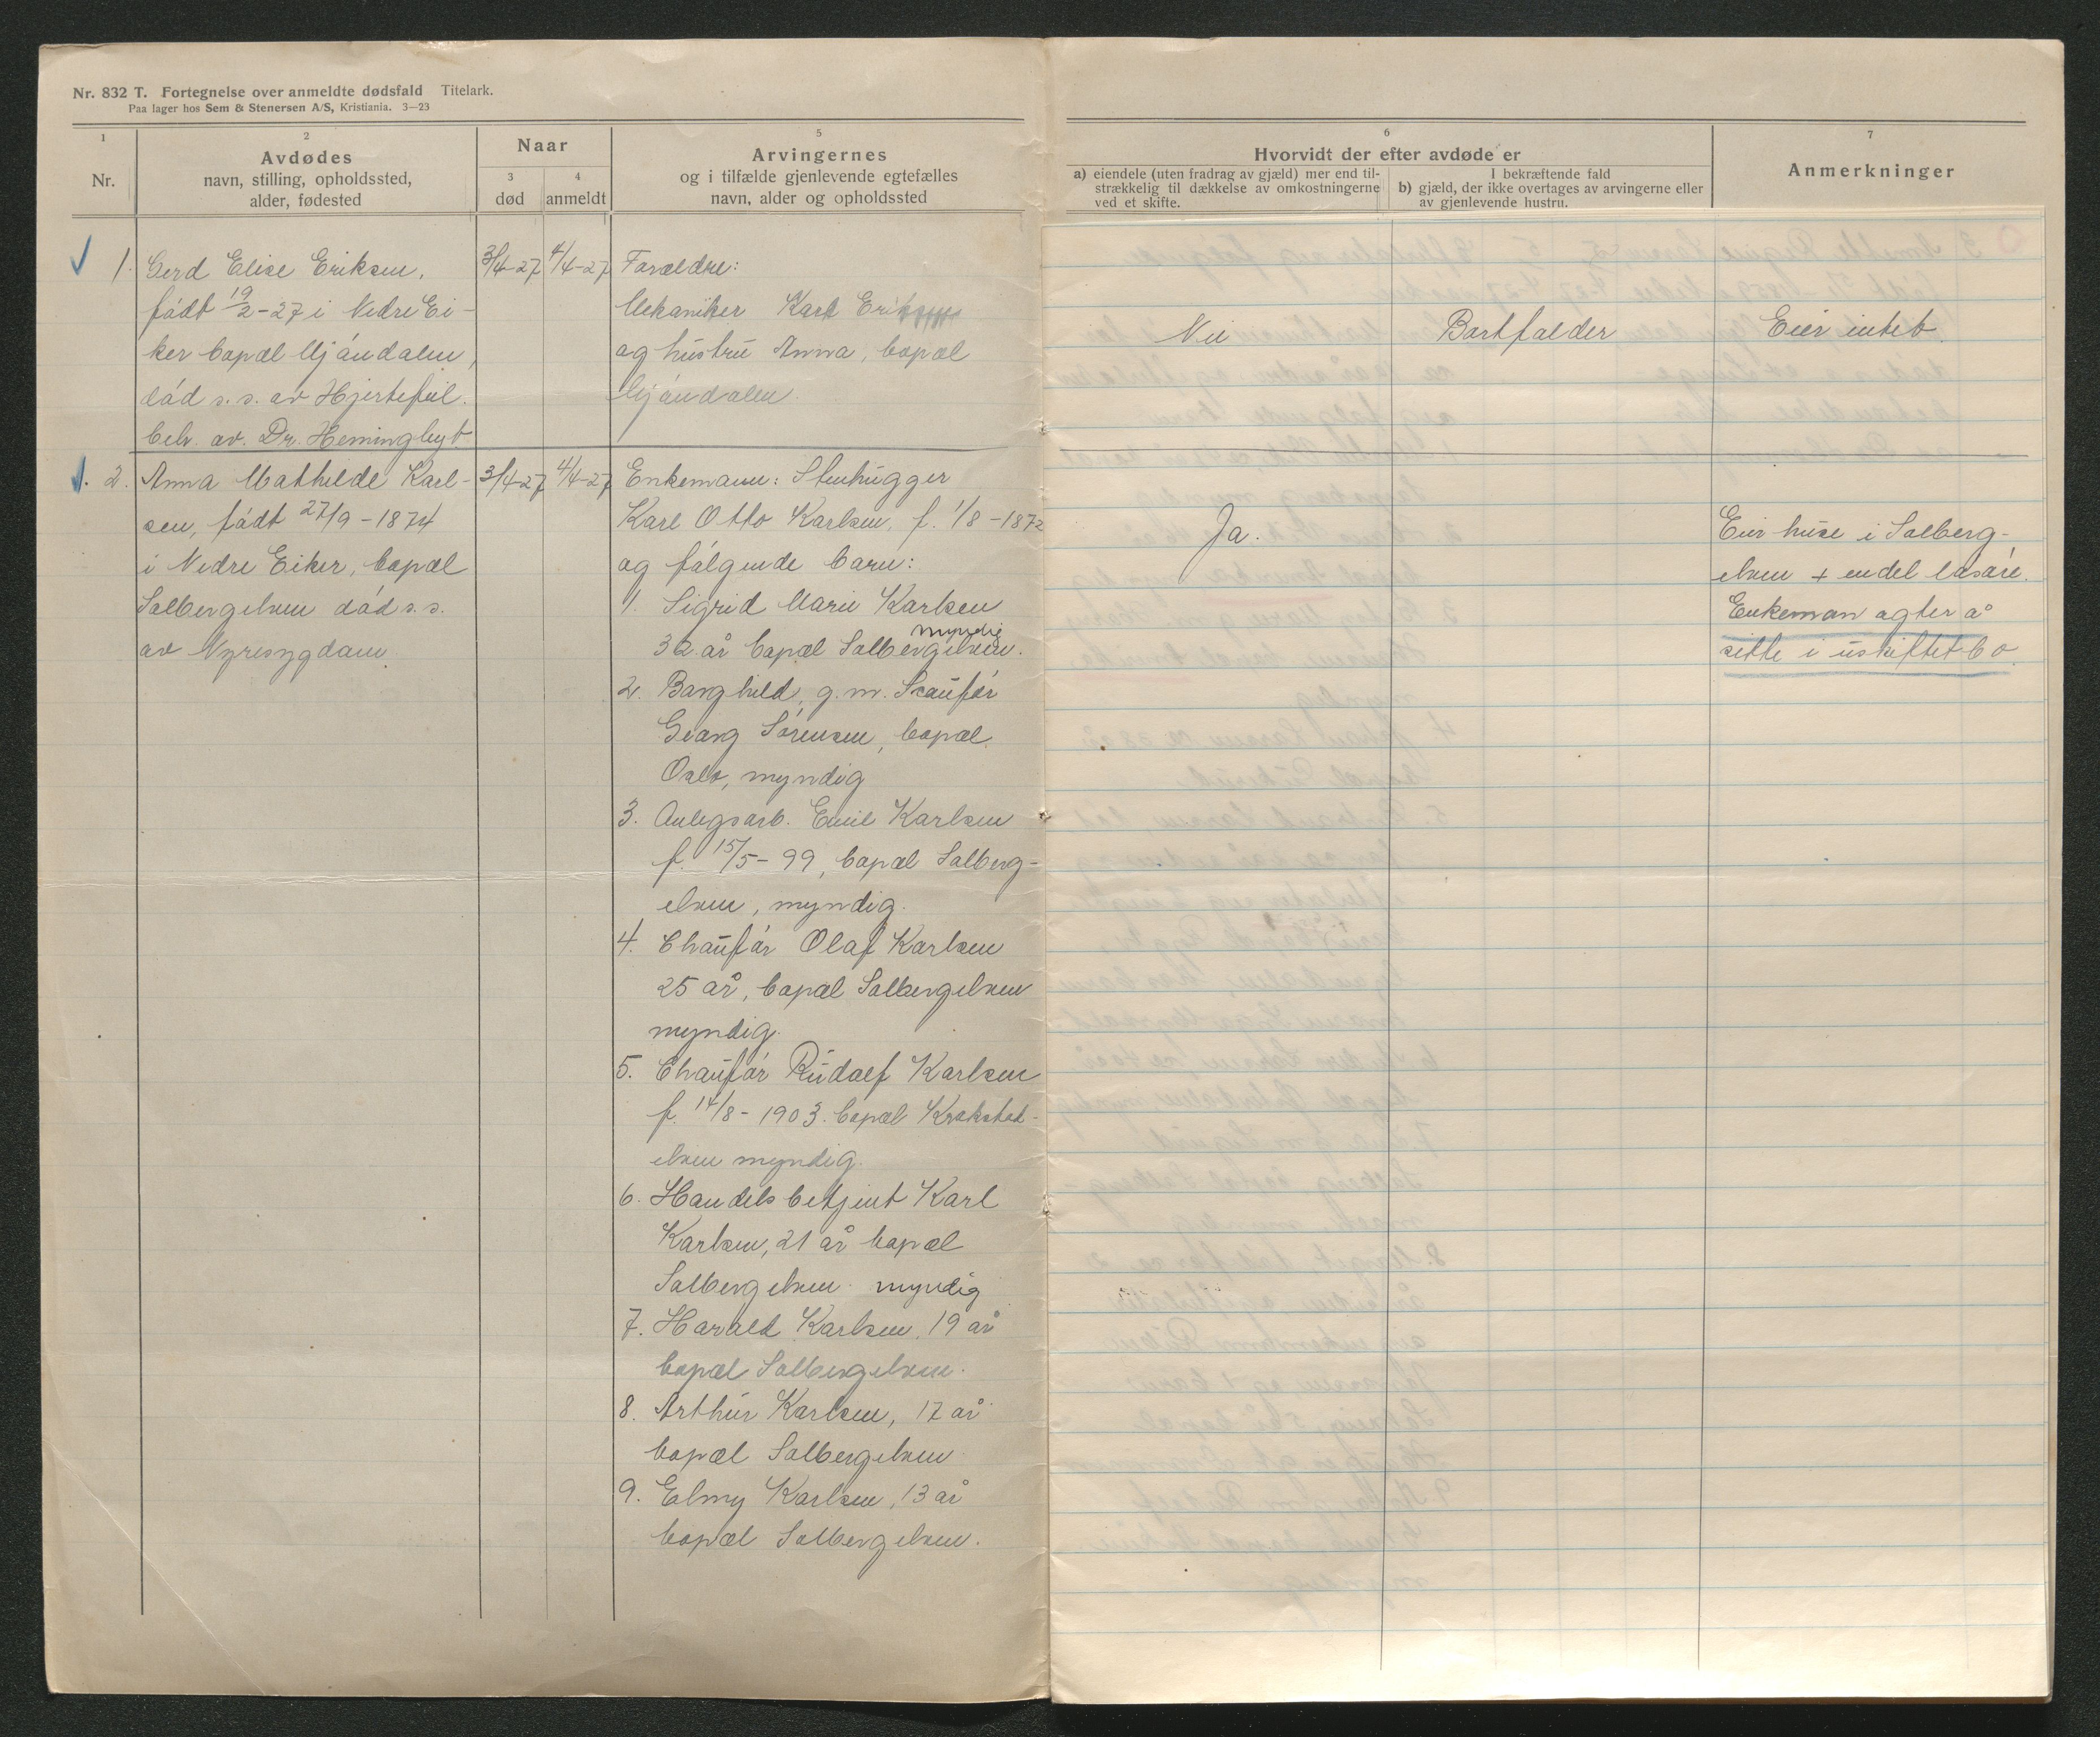 Nr. 832 T. Fortegnelse over anmeldte dødsfald Titelark.
Paa lager hos Sem & Stenersen A/S, Kristiania. 3—23
1
Nr.
2
Avdødes
navn, stilling, opholdssted,
alder, fødested
Naar
3
død
4
anmeldt
5
Arvingernes
og i tilfælde gjenlevende egtefælles
navn, alder og opholdssted
6
Hvorvidt der efter avdøde er
a) eiendele (uten fradrag av gjæld) mer end til-
strækkelig til dækkelse av omkostningerne
ved et skifte.
I bekræftende fald
b) gjæld, der ikke overtages av arvingerne eller
av gjenlevende hustru.
7
Anmerkninger
1.
Gerd Elise Eriksen,
født 19/2-27 i Nedre Ei-
ker bopæl Mjøndalen,
død s. s. av Hjertefeil.
beh. av. Dr. Hemingbyt
3/4-27
4/4-27
Forældre:
Mekaniker Karl Eriksen
og hustru Anna, bopæl
Mjøndalen
Nei
Bortfalder
Eier intet.
2.
Anna Mathilde Karl-
sen, født 27/9-1874
i Nedre Eiker, bopæl
Solbergelven død s. s.
av Nyresygdom
3/4-27
4/4-27
Enkemann: Stenhugger
Karl Otto Karlsen, f. 1/8-1872
og følgende barn:
1. Sigrid Marie Karlsen
myndig
32 år bopæl Solbergelven.
2. Borghild, g. m. Scaufør
Georg Sørensen, bopæl
Oslo, myndig
3. Anlegsarb. Emil Karlsen
f. 15/5-99, bopæl Solberg-
elven, myndig.
4. Chaufør Olaf Karlsen
25 år, bopæl Solbergelven
myndig.
5. Chaufør Rudolf Karlsen
f. 14/8-1903. bopæl Krokstad-
elven myndig.
6. Handelsbetjent Karl
Karlsen, 21 år bopæl
Solbergelven. myndig
7. Harald Karlsen, 19 år
bopæl Solbergelven.
8. Arthur Karlsen, 17 år
bopæl Solbergelven
9. Edmy Karlsen, 13 år
bopæl Solbergelven.
Ja.
Eier huse i Solberg-
elven + endel løsøre.
Enkeman agter å
sitte i uskiftet bo.